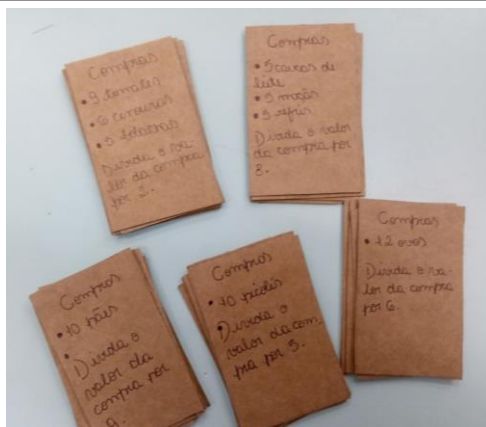 Compras
• 3 tomates
• 6 cenouras
• 5 batatas
Divida o va-
lor da compra
por 2.
Compras
• 5 caixas de
leite
• 5 maçãs
• 5 refris
Divida o valor
da compra por
3.
Compras
• 10 pães
•
Divida o
valor da
compra por
Compras
• 10 picolés
• Divida o
valor da com
pra por 5.
Compras
• 12 ovos
Divida o va-
lor da compra
por 6.